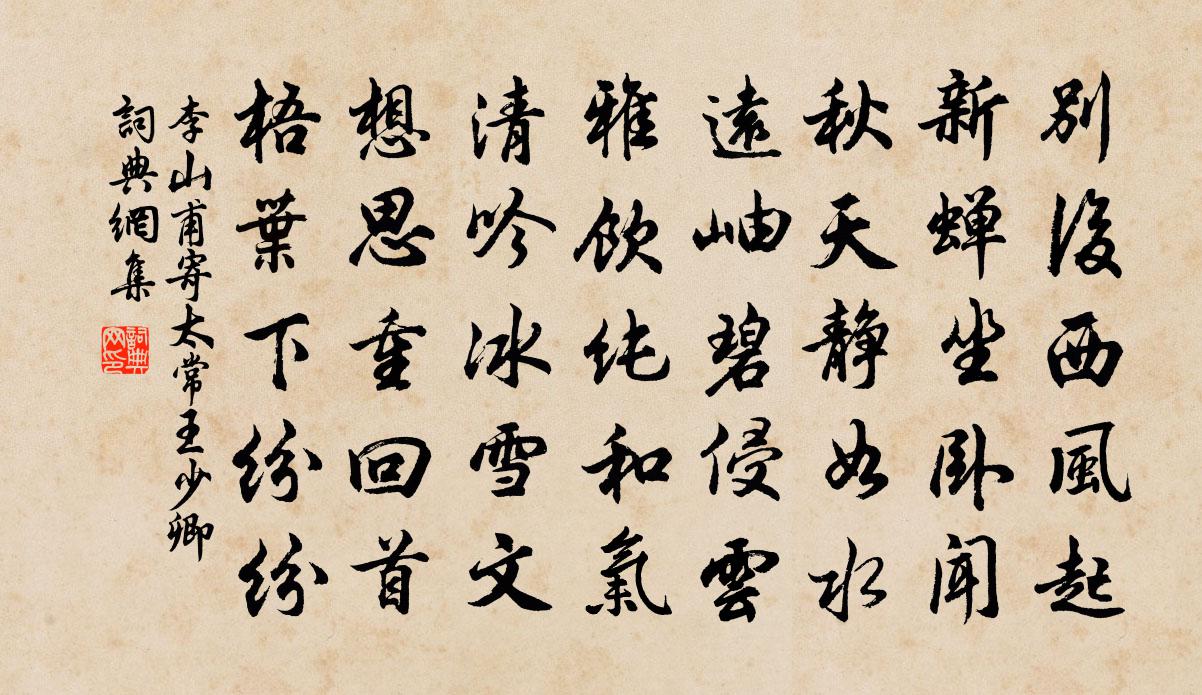 別後西風起
新蟬坐卧聞
秋天靜如水
遠岫碧侵雲
雅飲純和氣
清吟冰雪文
想思重回首
梧葉下紛紛
李山甫寄太常王少卿
詞典網集
詞典
网印